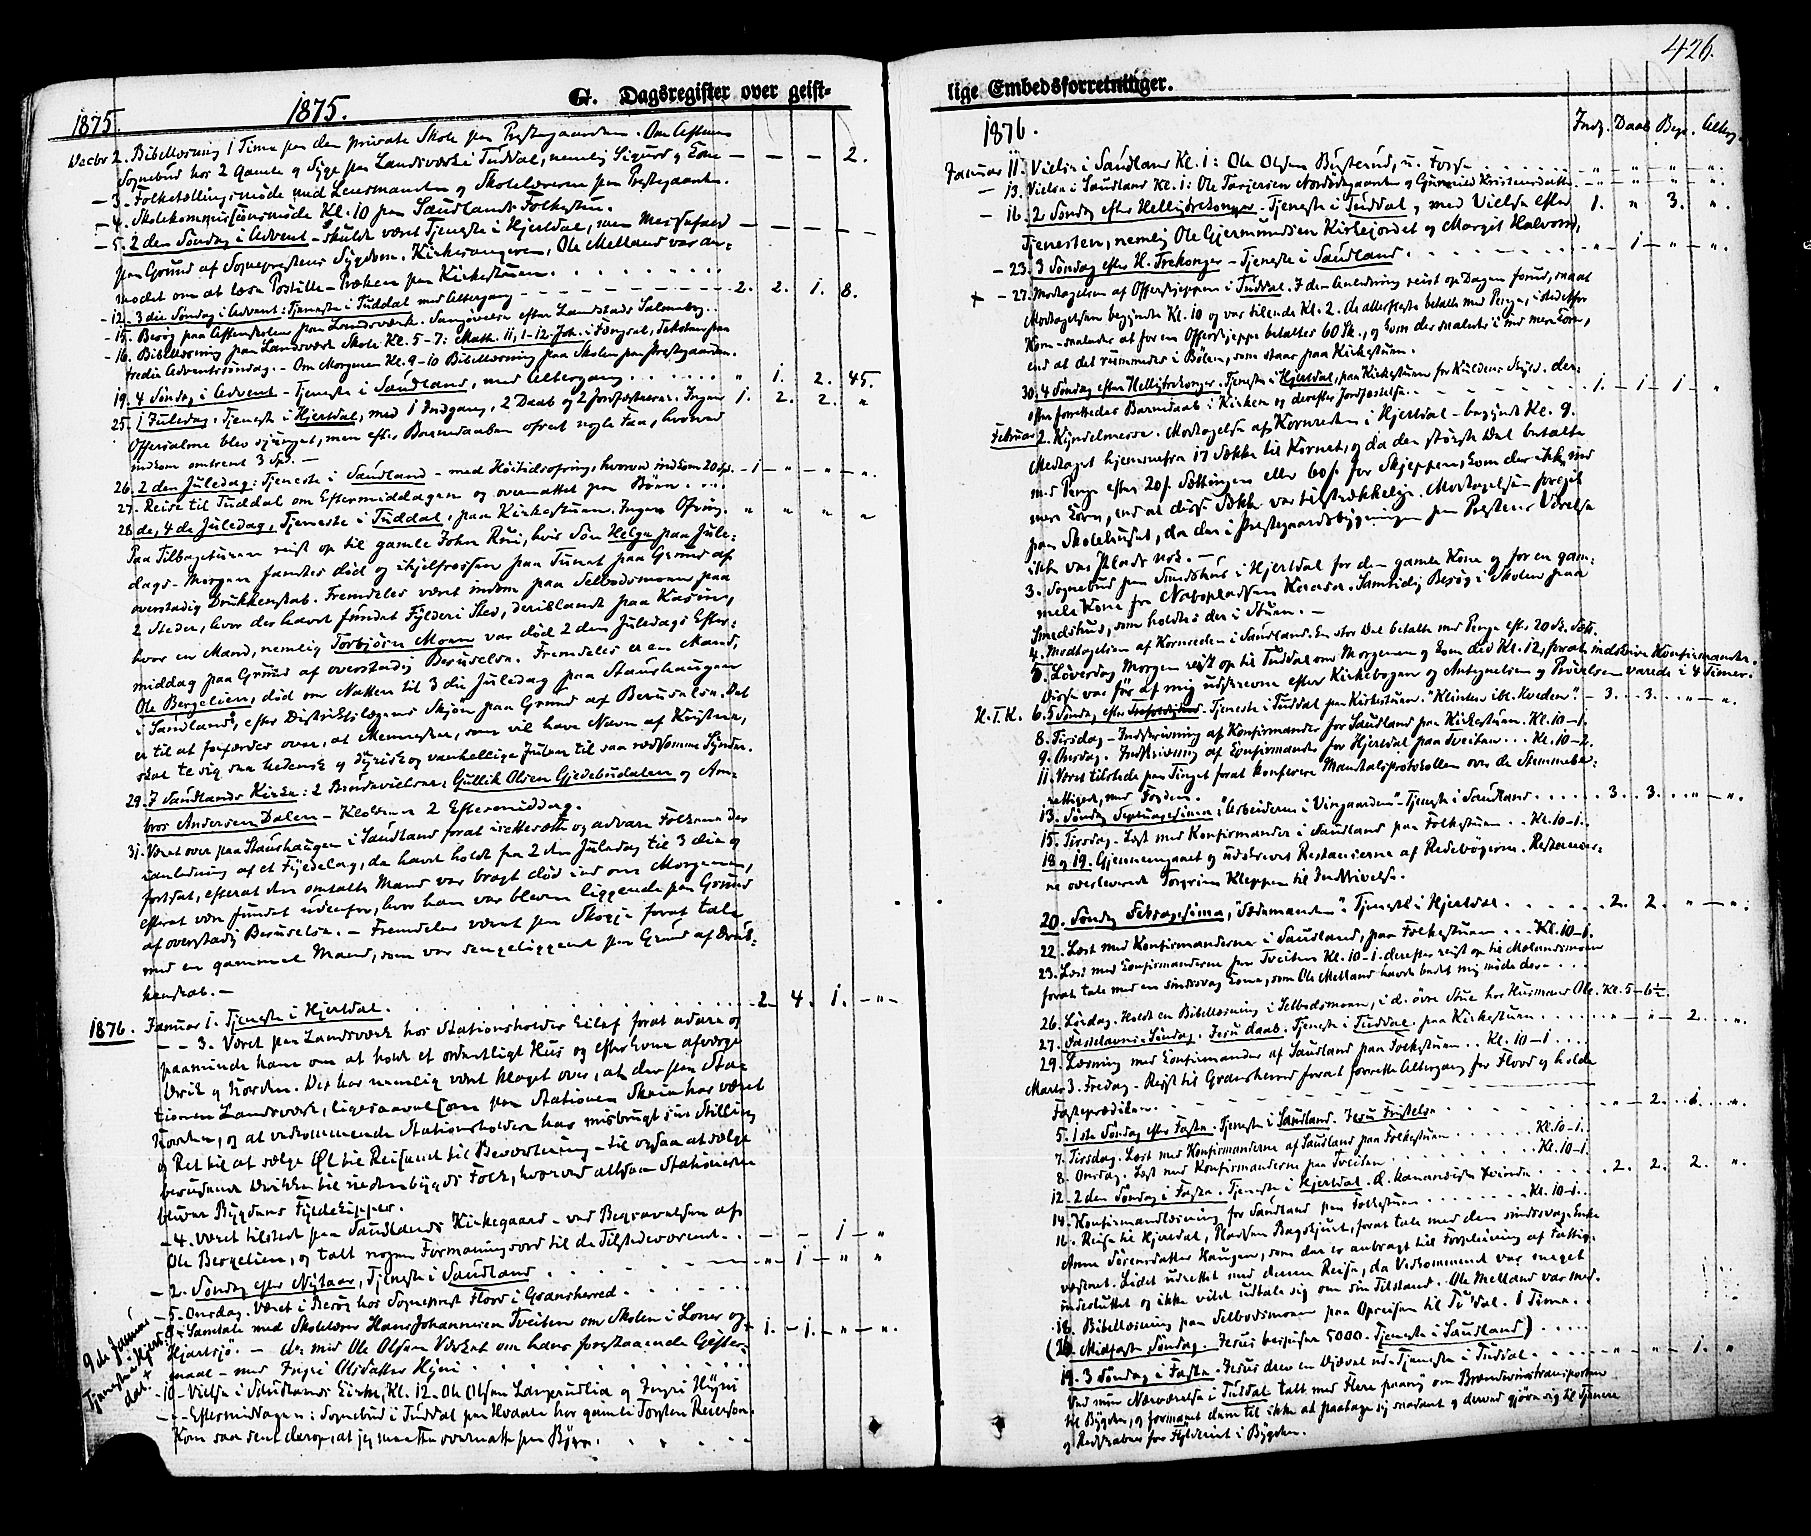 G. Dagsregister over geist-
1875. 1875.
Decbr 2. Bibellæsning 1 Time paa den private Skole paa Præstegaarden. Om Aftenen
Sognebud hos 2 Gamle og Syge paa Landsværk i Tuddal, nemlig Sigurd og Kone — — — 2.
— 3. Folketællingsmøde med Lensmanden og Skolelærerne paa Præstegaarden.
— 4. Skolekommissionsmøde Kl. 10 paa Saulands Folkestue.
— 5. 2den Søndag i Advent — skulde været Tjeneste i Hjertdal, men Messefald — — — —
paa Grund af Sognepræstens Sygdom. Kirkesangeren, Ole Melland var an-
modet om at læse Postille-Præken paa Kirkestuen.
— 12. 3die Søndag i Advent: Tjeneste i Tuddal med Altergang — 2. 2. 1. 8.
— 15. Besøg paa Aftenskolen paa Landsværk. Sangøvelse efter Landstads Salmebog.
— 16. Bibellæsning paa Landsværk Skole Kl. 5-7: Math. 11, 1-12, Joh. i Fængsel, Teksten paa
tredie Adventssøndag. — Om Morgenen Kl. 9-10 Bibellæsning paa Skolen paa Præstegaarden.
19. 4 Søndag i Advent — Tjeneste i Saudland, med Altergang . . . . " 1. 2. 45.
25. 1 Juledag. Tjeneste i Hjertdal, med 1 Indgang, 2 Daab og 2 Jordfæstelser. Ingen 1. 2. 2. "
Offersalme blev sjunget, men efter Barnedaaben ofret nogle Faa, hvorved
indkom omtrent 3 Spd. —
26. 2den Juledag: Tjeneste i Saudland — med Høitidsofring, hvorved indkom 20 Sp. — 1 — " — " — "
27. Reise til Tuddal om Eftermiddagen og overnattet paa Bøen. . . .
28de, 4de Juledag, Tjeneste i Tuddal, paa Kirkestuen. Ingen Ofring. " " " "
Paa Tilbageturen reist op til gamle John Rui, hvis Søn Helge paa Jule-
dags-Morgen fandtes død og ihjelfrossen paa Tunet paa Grund af
overstadig Drukkenskab. Fremdeles været indom paa Selbodsmoen paa
2 Steder, hvor der havde fundet Fylderi Sted, deriblandt paa Kasin,
hvor en Mand, nemlig Torbjørn Moen var død 2den Juledags Efter-
middag paa Grund af overstadig Beruselse. Fremdeles er en Mand,
Ole Bergelien, død om Natten til 3die Juledag paa Staurhaugen
i Saudland, efter Distriktslægens Skjøn paa Grund af Beruselse. Det
er til at forfærdes over, at Mennesker, som vil have Navn af Kristne,
skal te sig saa hedensk og dyrisk og vanhellige Julen til saa rædsomme Synder.
29. I Saudlands Kirke: 2 Brudevielser, Gullik Olsen Gjedebudalen og An-
bror Andersen Dalen — Klokken 2 Eftermiddag.
31. Været over paa Staurhaugen i Saudland forat irettesætte og advare Folkene der
i anledning af et Fyldelag, de havde holdt fra 2den Juledag til 3die og
fortsat, efterat den omtalte Mand var bragt død ind om Morgenen,
efterat være fundet udenfor, hvor han var bleven liggende paa Grund
af overstadig Beruselse. — Fremdeles været paa Skogja forat tale
med en gammel Mand, som var sengeliggende paa Grund af Druk-
kenskab. —
1876. Januar 1. Tjeneste i Hjertdal. . . . . — 2 — 4. 1. — " —
— 3. Været paa Landsværk hos Stationsholder Eilef forat advare og
paaminde ham om at holde et ordentligt Hus og efterkomme afværge
Drik og Horden. Det har nemlig været klaget over, at der paa Sta-
tionen Landsværk, ligesaavel som paa Stationen Skeie har været
Horden, og at vedkommende Stationsholdere har misbrugt sin Stilling
og Ret til at sælge Øl til Reisende til Beværtning — til ogsaa at sælge
berusende Drikke til uedenbygds Folk, hvorved altsaa Stationerne
bliver Bygdens Fyldekipper.
— 4. Været tilstede paa Saudlands Kirkegaard — ved Begravelsen af
Ole Bergelien, og talt nogen Formaningsord til de Tilstedeværende. — — 1 — "
— 2. Søndag efter Nytaar, Tjeneste i Saudland — " — 1 — " "
— 5. Onsdag. Været i Besøg hos Sognepræst Flood i Gransherred.
9de Januar Tjeneste i Hjertdal. +
8. Samtale med Skolelærer Hans Johannesen Tveiten om Skolen i Loner og — 1. — 1. — " — ".
Hjartsjø. — do. med Ole Olsen Værket om hans forestaaende Gifter-
maal — med Ingri Olsdatter Høini
— 10. Vielse i Saudlands Kirke, Kl. 12. Ole Olsen Langerudlia og Ingri Høini
— " Eftermiddagen: Sognebud i Tuddal paa Hovdale hos gamle Torsten Reierson.
Kom saa sent derop, at jeg maatte overnatte paa Bøen.
lige Embedsforretninger. 426.
1876. Indg. Daab Begr. Alterg.
Januar 11. Vielse i Saudland Kl. 1: Ole Olsen Busterud, u. Fosse — " — " — " — "
— 13. Vielse i Saudland Kl. 1: Ole Tarjeisen Nordbøgaarden og Gunnild Kristensdatter — " — " — " — "
— 16. 2 Søndag efter Helligtrekonger — Tjeneste i Tuddal, med Vielse efter 1. " 3. ".
Tjenesten, nemlig Ole Gjermundsen Kirkejordet og Margit Halvorsd.
— 23. 3 Søndag efter H. Trekonger — Tjeneste i Saudland. — " — 1 — " — ".
+ — 27. Modtagelsen af Offerskjeppen i Tuddal. I den Anledning reist op Dagen forud, saat
Modtagelsen begyndte Kl. 10 og var tilende Kl. 2. De allerfleste betalte med Penge, istedetfor
Korn — saaledes at for en Offerskjeppe betaltes 60 Sk., og kom der saaledes ind mere Korn,
end at det rummedes i Bølen, som staar paa Kirkestuen.
30. 4 Søndag efter Helligtrekonger. Tjeneste i Hjertdal, paa Kirkestuen for Kuldens Skyld. der-
efter forrettedes Barnedaab i Kirken og derefter Jordfæstelse. — 1. — 1 — 1 — "
Februar 2. Kyndelmesse. Modtagelse af Kornreden i Hjertdal — begyndt Kl. 9.
Medtaget hjemmefra 17 Sække til Kornet, og da den største Del betalte
med Penge efter 20 f. Sættingen eller 60 f. for Skjeppen, kom der ikke ind
mere Korn, end at disse Sække var tilstrækkelige. Modtagelsen foregik
paa Skolehuset, da der i Præstegaardsbygningen paa Præstens Værelse
ikke var Plads nok. —
3. Sognebud paa Smedshus i Hjertdal for den gamle Kone og for en gam-
mel Kone fra Nabopladsen Kaasa. Samtidig Besøg i Skolen paa
Smedshus, som holdtes der i Stuen. —
4. Modtagelsen af Kornreden i Saudland. En stor Del betalte med Penge efter 20 Sk. Sætt.
5. Løverdag Morgen reist op til Tuddal om Morgenen og kom did Kl. 12, forat indskrive Konfirmander.
Disse var før af mig udskrevne efter Kirkebogen og Antegnelsen og Prøvelsen varede i 4 Timer.
H.T.K. 6. 5 Søndag efter — Tjeneste i Tuddal paa Kirkestuen. "Klinten ibl. Hveden". — 3. — 3. — " — ".
8. Tirsdag — Indskrivning af Konfirmander for Saudland paa Kirkestuen. Kl. 10-1.
9. Onsdag. Indskrivning af Konfirmander for Hjertdal paa Tveiten . . . Kl. 10-2.
11. Været tilstede paa Tinget forat konferere Mandtalsprotokollen over de Stemmebe-
rettigede, med Fogden.
13. Søndag Septuagesima, "Arbeiderne i Vingaarden". Tjeneste i Saudland . . . . . 3. — 3. — " — ".
15. Tirsdag. Læst med Konfirmander i Saudland paa Folkestuen . . Kl. 10-1.
18 og 19. Gjennemgaaet og udskrevet Restancerne af Redebøgerne. Restancer-
ne overleverede Torgrim Kleppen til Inddrivelse.
20. Søndag Seksagesima, "Sædemanden". Tjeneste i Hjertdal . . . . . 2. 2. " — ".
22. Læst med Konfirmanderne i Saudland, paa Folkestuen . . . Kl. 10-1.
23. Læst med Konfirmanderne paa Tveiten Kl. 10-1. derefter reist op til Mælandsmoen
forat tale med en sindssvag Kone, som Ole Melland havde budet mig møde der.
26. Lørdag. Holdt en Bibellæsning i Selbodsmoen, i d. øvre Stue hos Husmand Ole. Kl. 5-6½.
27. Fastelavns-Søndag. Jesu Daab. Tjeneste i Tuddal. paa Kirkestuen . . . . " — " — 2. ".
29. Læsning med Konfirmander af Saudland paa Folkestuen . . Kl. 10-1
Marts 3. Fredag. Reist til Gransherred forat forrette Altergang for Flood og holde
Fasteprædiken. — " — 2. . 1. . ".
5. 1ste Søndag efter Faste. Tjeneste i Saudland. Jesu Fristelse
7. Tirsdag. Læst med Konfirmanderne af Saudland paa Folkestuen . . . . . Kl. 10-1.
8. Onsdag. Læst med Konfirmanderne paa Tveiten . . . . . Kl. 10-1
12. 2den Søndag i Faste. Tjeneste i Hjertdal. d. kananæiske Kvinde . . . 2. 2. 2. ".
14. Konfirmandlæsning for Saudland paa Folkestuen . . . . . . Kl. 10-1.
16. Reise til Hjertdal, Pladsen Bagskjuet, forat tale med den sindssvage Enke
Anne Sørensdatter Haugen, som der er anbragt til Forpleining af Fattig-
væsenet. Lidet udrettet med denne Reise, da Vedkommende var meget
indesluttet og ikke vilde udtale sig om sin Tilstand. Ole Melland var med.
18. Bibellæsning paa Selbodsmoen paa Opreisen til Tuddal. 1 Time.
(26. Midfaste Søndag. Jesus bespiser 5000. Tjeneste i Saudland)
19. 3 Søndag i Faste. Jesus drev en Djævel ud — Tjeneste i Tuddal. . . . . " — " 1. "
Ved min Nærværelse i Tuddal talt med Flere paany om Brændevinstransporten
til Bygden, og formanet dem til ikke at paatage sig saadant og derved gjøre sig til Tjenere
og Redskaber for Fylderiet i Bygden.